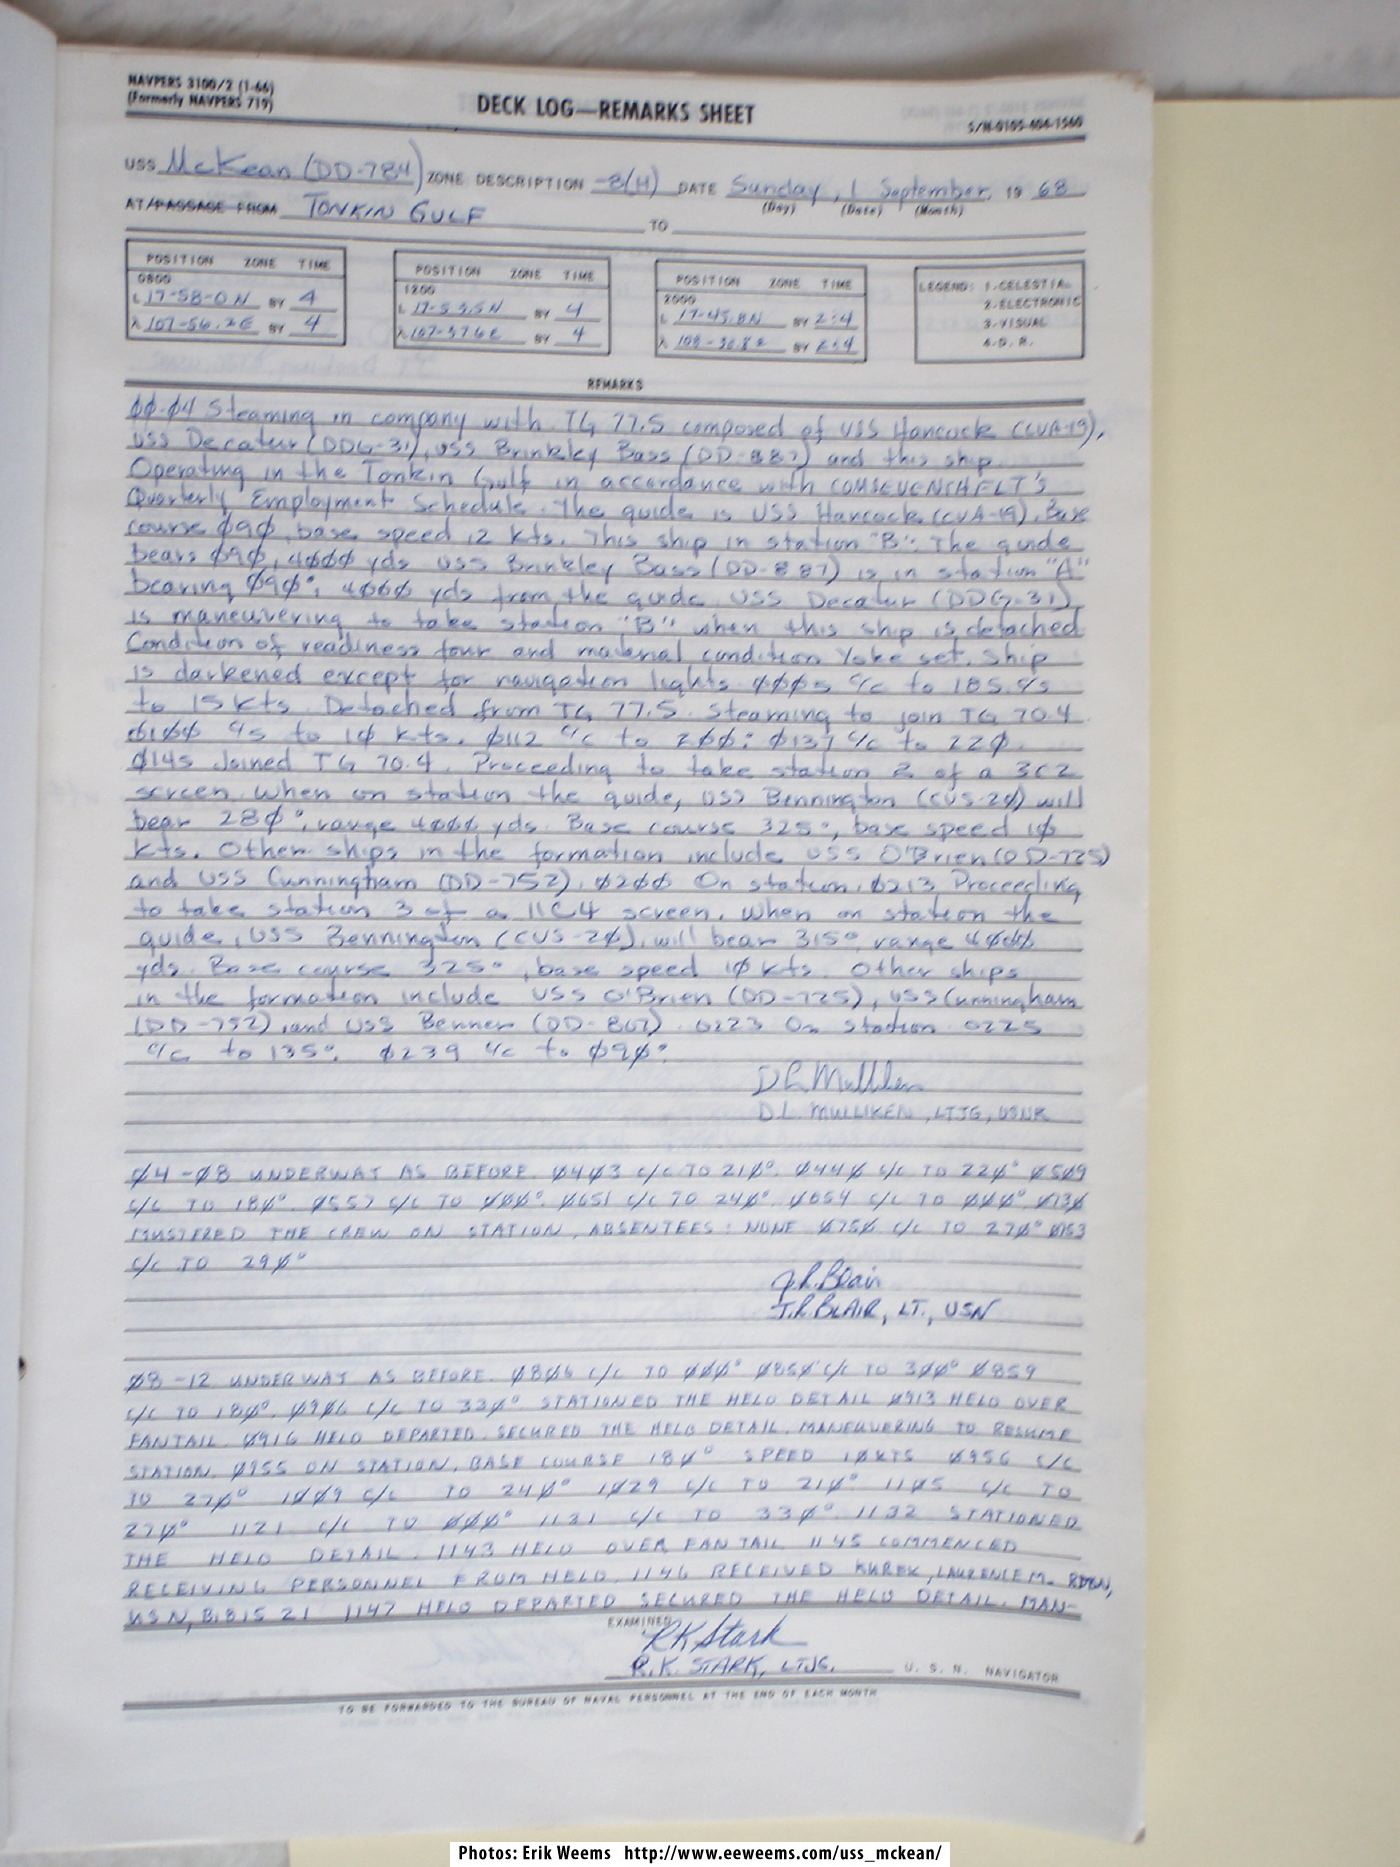 NAVPERS 3100/2 (1-66)
(Formerly NAVPERS 719)
DECK LOG—REMARKS SHEET
S/N-0105-404-1560
USS McKean (DD-784) ZONE DESCRIPTION -8(H) DATE Sunday, 1 September, 19 68
(Day) (Date) (Month)
AT/PASSAGE FROM TONKIN GULF TO
POSITION ZONE TIME
0800
L 17-58-0N BY 4
λ 107-56.2E BY 4
POSITION ZONE TIME
1200
L 17-53.5N BY 4
λ 107-37.6E BY 4
POSITION ZONE TIME
2000
L 17-45.8N BY 2:4
λ 108-30.8E BY 2:4
LEGEND: 1-CELESTIAL
2-ELECTRONIC
3-VISUAL
4-D.R.
REMARKS
00-04 Steaming in company with TG 77.5 composed of USS Hancock (CVA-19),
USS Decatur (DDG-31), USS Brinkley Bass (DD-887) and this ship.
Operating in the Tonkin Gulf in accordance with COMSEVENTHFLT's
Quarterly Employment Schedule. The guide is USS Hancock (CVA-19). Base
course 090, base speed 12 kts. This ship in station "B". The guide
bears 090, 4000 yds. USS Brinkley Bass (DD-887) is in station "A"
bearing 090°, 4000 yds from the guide. USS Decatur (DDG-31)
is maneuvering to take station "B" when this ship is detached
Condition of readiness four and material condition Yoke set. Ship
is darkened except for navigation lights 0005 c/c to 185. c/s
to 15 kts. Detached from TG 77.5. Steaming to join TG 70.4.
0100 c/s to 10 kts. 0112 c/c to 200° 0137 c/c to 220.
0145 Joined TG 70.4. Proceeding to take station 2 of a 3C2
screen. When on station the guide, USS Bennington (CVS-20) will
bear 280°, range 4000 yds. Base course 325°, base speed 10
kts. Other ships in the formation include USS O'Brien (DD-725)
and USS Cunningham (DD-752). 0200 On station. 0213 Proceeding
to take station 3 of a 11C4 screen. When on station the
guide, USS Bennington (CVS-20), will bear 315° range 4000
yds. Base course 325°, base speed 10 kts. Other ships
in the formation include USS O'Brien (DD-725), USS Cunningham
(DD-752), and USS Benner (DD-807). 0223 On station 0225
c/c to 135°. 0239 c/c to 090°
D L Mulliken
D.L. MULLIKEN, LTJG, USNR
04-08 UNDERWAY AS BEFORE. 0403 C/C TO 210°. 0440 C/C TO 220° 0509
C/C TO 180°. 0557 C/C TO 000°. 0651 C/C TO 240°. 0654 C/C TO 000°. 0730
MUSTERED THE CREW ON STATION, ABSENTEES: NONE 0750 C/C TO 270° 0753
C/C TO 290°
J.R. Blair
J.R. BLAIR, LT., USN
08-12 UNDERWAY AS BEFORE. 0806 C/C TO 000° 0850 C/C TO 300° 0859
C/C TO 180°. 0906 C/C TO 330°. STATIONED THE HELO DETAIL 0913 HELO OVER
FANTAIL. 0916 HELO DEPARTED. SECURED THE HELO DETAIL. MANEUVERING TO RESUME
STATION. 0955 ON STATION, BASE COURSE 180° SPEED 10KTS 0956 C/C
TO 270° 1009 C/C TO 240° 1029 C/C TO 210° 1105 C/C TO
270° 1121 C/C TO 000° 1131 C/C TO 330°. 1132 STATIONED
THE HELO DETAIL. 1143 HELO OVER FANTAIL 1145 COMMENCED
RECEIVING PERSONNEL FROM HELO. 1146 RECEIVED KUREK, LAURENCE M.
USN, 1147 HELO DEPARTED SECURED THE HELO DETAIL. MAN-
EXAMINED
RK Stark
R.K. STARK, LTJG. U. S. N. NAVIGATOR
TO BE FORWARDED TO THE BUREAU OF NAVAL PERSONNEL AT THE END OF EACH MONTH
Photos: Erik Weems http://www.eeweems.com/uss_mckean/